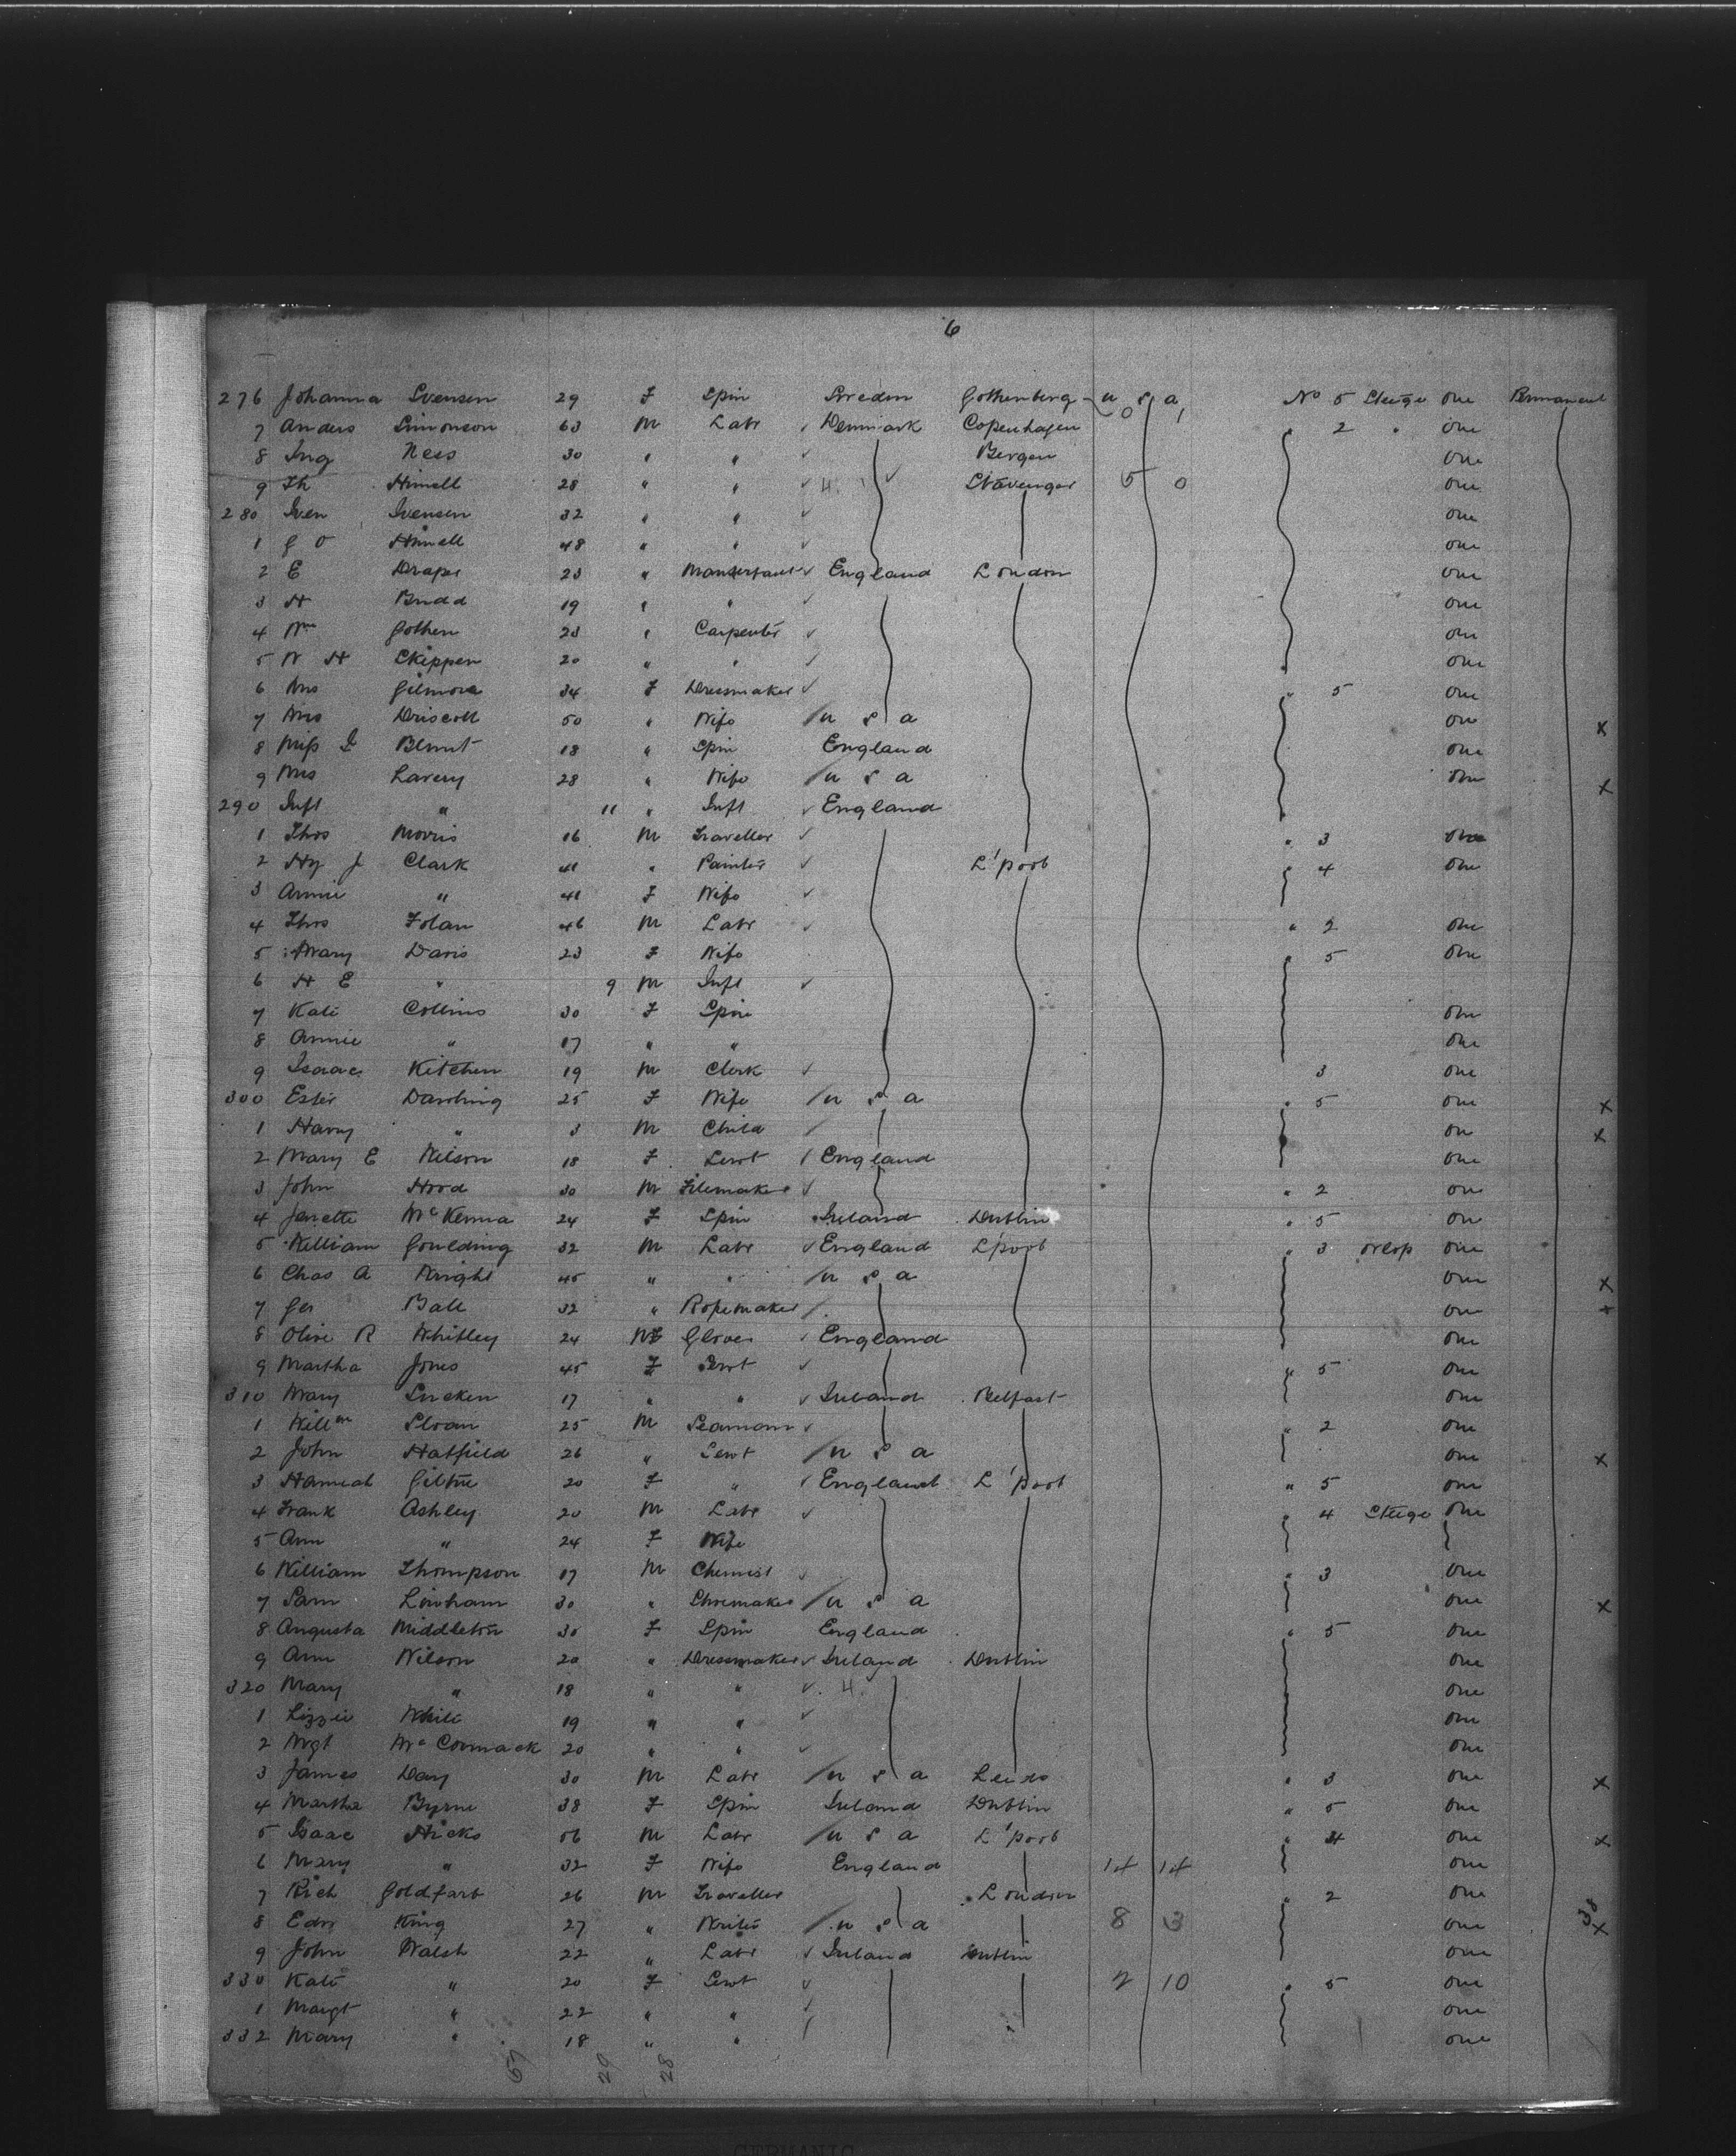 6
276 Johanna Svensen 29 F Spin Sweden Gothenberg U S A No 5 Steerge one Permanent
7 Anders Simonson 63 M Labr Denmark Copenhagen " 2 " one
8 Ing Ness 30 " " Bergen one
9 Th Himell 28 " " Stavenger 5 0 one
280 Sven Svensen 32 " " one
1 G O Himell 48 " " one
2 E Draper 23 " Manservant England London one
3 H Budd 19 " " one
4 Wm Gothen 23 " Carpenter one
5 W H Skippen 20 " " one
6 Mrs Gilmore 34 F Dressmaker " 5 one
7 Mrs Driscoll 50 " Wife U S A one X
8 Miss I Blunt 18 " Spin England one
9 Mrs Lavery 28 " Wife U S A one X
290 Inft " 11 " Inft England
1 Thos Morris 16 M Traveller " 3 one
2 Hy J Clark 41 " Painter L'pool " 4 one
3 Annie " 41 F Wife
4 Thos Folan 46 M Labr " 2 one
5 Mary Davis 23 F Wife " 5 one
6 H E " 9 M Inft
7 Kate Collins 30 F Spin one
8 Annie " 17 " " one
9 Isaac Kitchen 19 M Clerk 3 one
300 Ester Dawling 25 F Wife U S A " 5 one X
1 Harry " 3 M Child on X
2 Mary E Wilson 18 F Servt England one
3 John Hood 30 M Filemaker " 2 one
4 Janette McKenna 24 F Spin Ireland Dublin " 5 on
5 William Goulding 32 M Labr England L'pool " 3 orlop one
6 Chas A Wright 45 " " U S A one X
7 Geo Ball 32 " Ropemaker one X
8 Olive R Whitley 24 F Glover England one
9 Martha Jones 45 F Servt " 5 one
310 Mary 17 " " Ireland Belfast one
1 Willm Sloan 25 M Seaman " 2 one
2 John Hatfield 26 " Servt U S A one X
3 Hannah 20 F " England L'pool " 5 one
4 Frank Ashley 20 M Labr " 4 Steerge one
5 Ann " 24 F Wife
6 William Thompson 17 M Chemist " 3 one
7 Sam Linham 30 " Shoemaker U S A one X
8 Augusta Middleton 30 F Spin England " 5 one
9 Ann Wilson 20 " Dressmaker Ireland Dublin one
320 Mary " 18 " " one
1 Lizzie White 19 " " one
2 Mrgt McCormack 20 " " one
3 James Day 30 M Labr U S A Leeds " 3 one X
4 Martha Byrne 38 F Spin Ireland Dublin " 5 one
5 Isaac Hicks 56 M Labr U S A L'pool " 4 one X
6 Mary " 32 F Wife England 14 14 one
7 Rich Goldfarb 26 M Traveller London " 2 one
8 Edw King 27 " Writer U S A 8 3 one X
9 John Walsh 22 " Labr Ireland Dublin one
330 Kate " 20 F Servt 2 10 " 5 one
1 Margt " 22 " " one
332 Mary " 18 " " one
29 28
GERMANIC